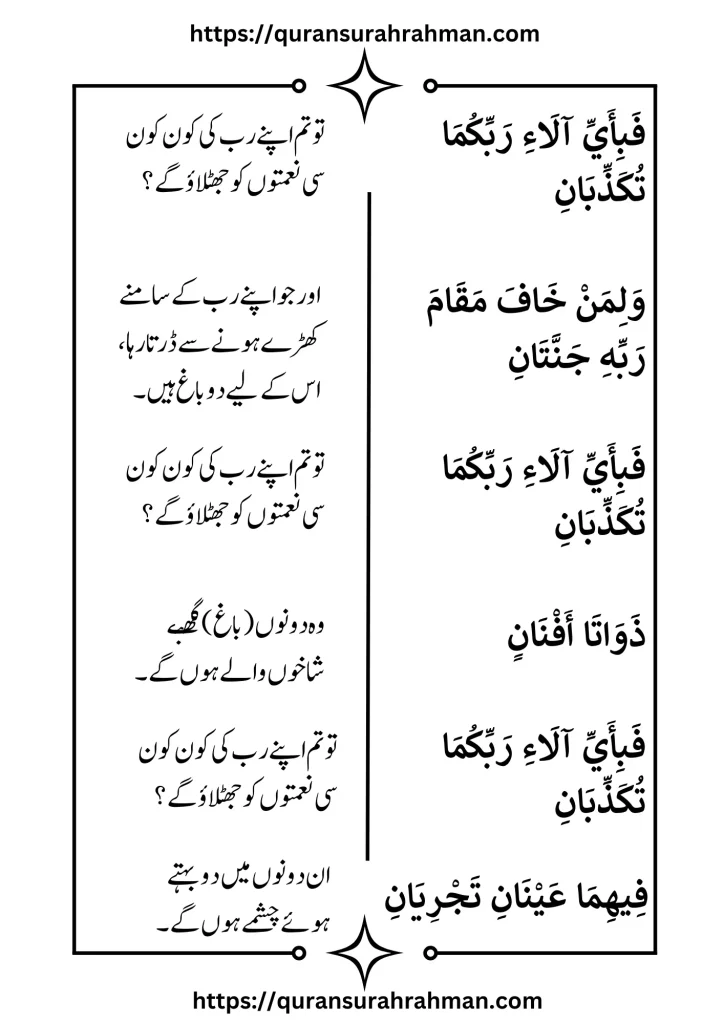 https://quransurahrahman.com
فَبِأَيِّ آلَاءِ رَبِّكُمَا
تُكَذِّبَانِ
تو تم اپنے رب کی کون کون
سی نعمتوں کو جھٹلاؤ گے؟
وَلِمَنْ خَافَ مَقَامَ
رَبِّهِ جَنَّتَانِ
اور جو اپنے رب کے سامنے
کھڑے ہونے سے ڈرتا رہا،
اس کے لیے دو باغ ہیں۔
فَبِأَيِّ آلَاءِ رَبِّكُمَا
تُكَذِّبَانِ
تو تم اپنے رب کی کون کون
سی نعمتوں کو جھٹلاؤ گے؟
ذَوَاتَا أَفْنَانٍ
وہ دونوں (باغ)
شاخوں والے ہوں گے۔
فَبِأَيِّ آلَاءِ رَبِّكُمَا
تُكَذِّبَانِ
تو تم اپنے رب کی کون کون
سی نعمتوں کو جھٹلاؤ گے؟
فِيهِمَا عَيْنَانِ تَجْرِيَانِ
ان دونوں میں دو بہتے
ہوئے چشمے ہوں گے۔
https://quransurahrahman.com